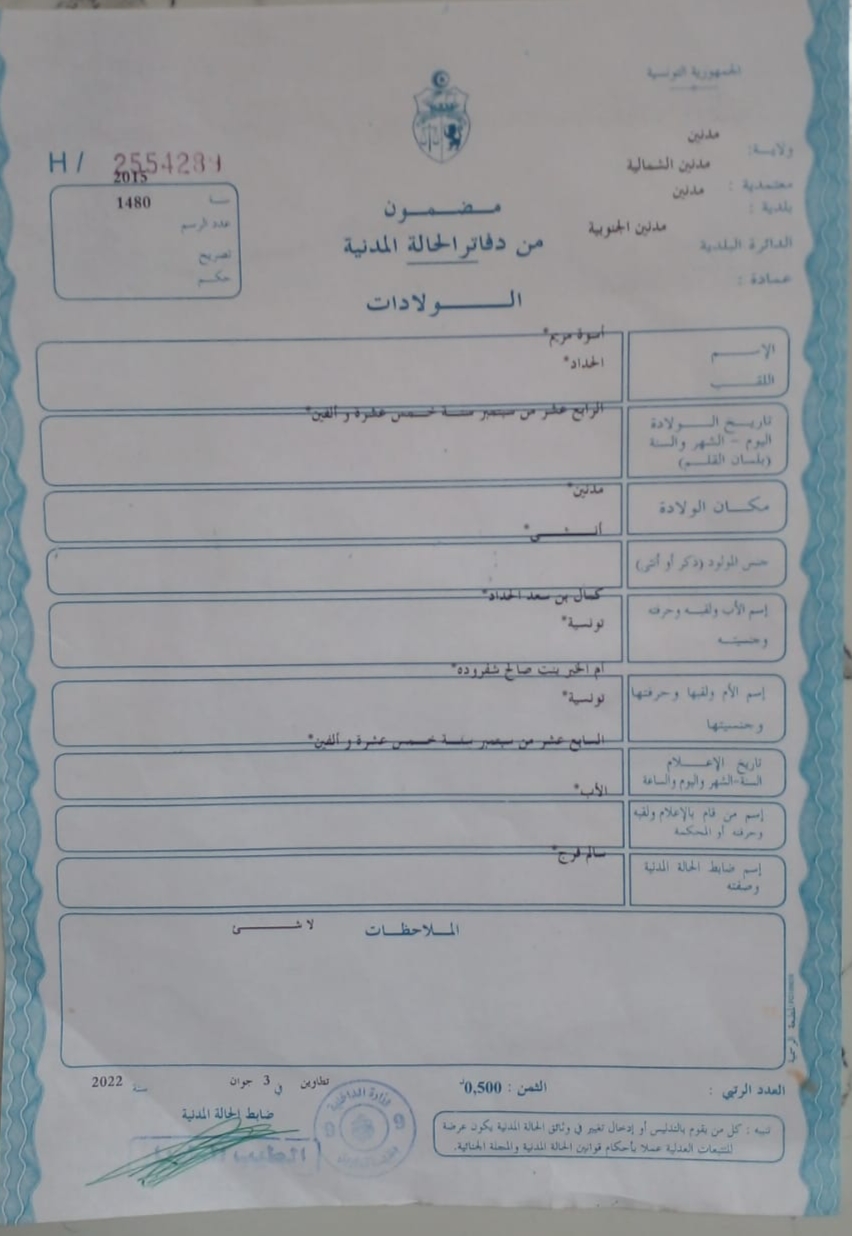 الجمهورية التونسية
ولايـــة: مدنين
معتمدية : مدنين الشمالية
بلدية : مدنين
الدائرة البلدية مدنين الجنوبية
عمادة :
H / 2554281
سنة 2015
عدد الرسم 1480
تصريح
حكم
مضمون
من دفاتر الحالة المدنية
الـــولادات
الإســـم
أسوة مريم*
اللقب
الحداد*
تاريـــخ الــولادة
اليوم - الشهر والسنة
(بلسان القلـم)
الرابع عشر من سبتمبر سنة خمس عشرة و ألفين*
مكــان الولادة
مدنين*
جنس المولود (ذكر أو أنثى)
أنـــثـــى*
إسم الأب ولقبـه وحرفته
كمال بن سعد الحداد*
وجنسيتـه
تونسية*
إسم الأم ولقبها وحرفتها
أم الخير بنت صالح شفروده*
وجنسيتها
تونسية*
تاريخ الإعـــلام
السنة-الشهر واليوم والساعة
السابع عشر من سبتمبر سنة خمس عشرة و ألفين*
إسم من قام بالإعلام ولقبه
وحرفته أو المحكمة
الأب*
إسم ضابط الحالة المدنية
وصفته
سالم فرج*
المـلاحظـات
لا شـــــى
المطبعة الرسمية
العدد الرتبي :
الثمن : 0,500د
تطاوين في 3 جوان سنة 2022
ضابط الحالة المدنية
وزارة الداخلية
9
تنبيه : كل من يقوم بالتدليس أو إدخال تغيير في وثائق الحالة المدنية يكون عرضة
للتتبعات العدلية عملا بأحكام قوانين الحالة المدنية والمجلة الجنائية.